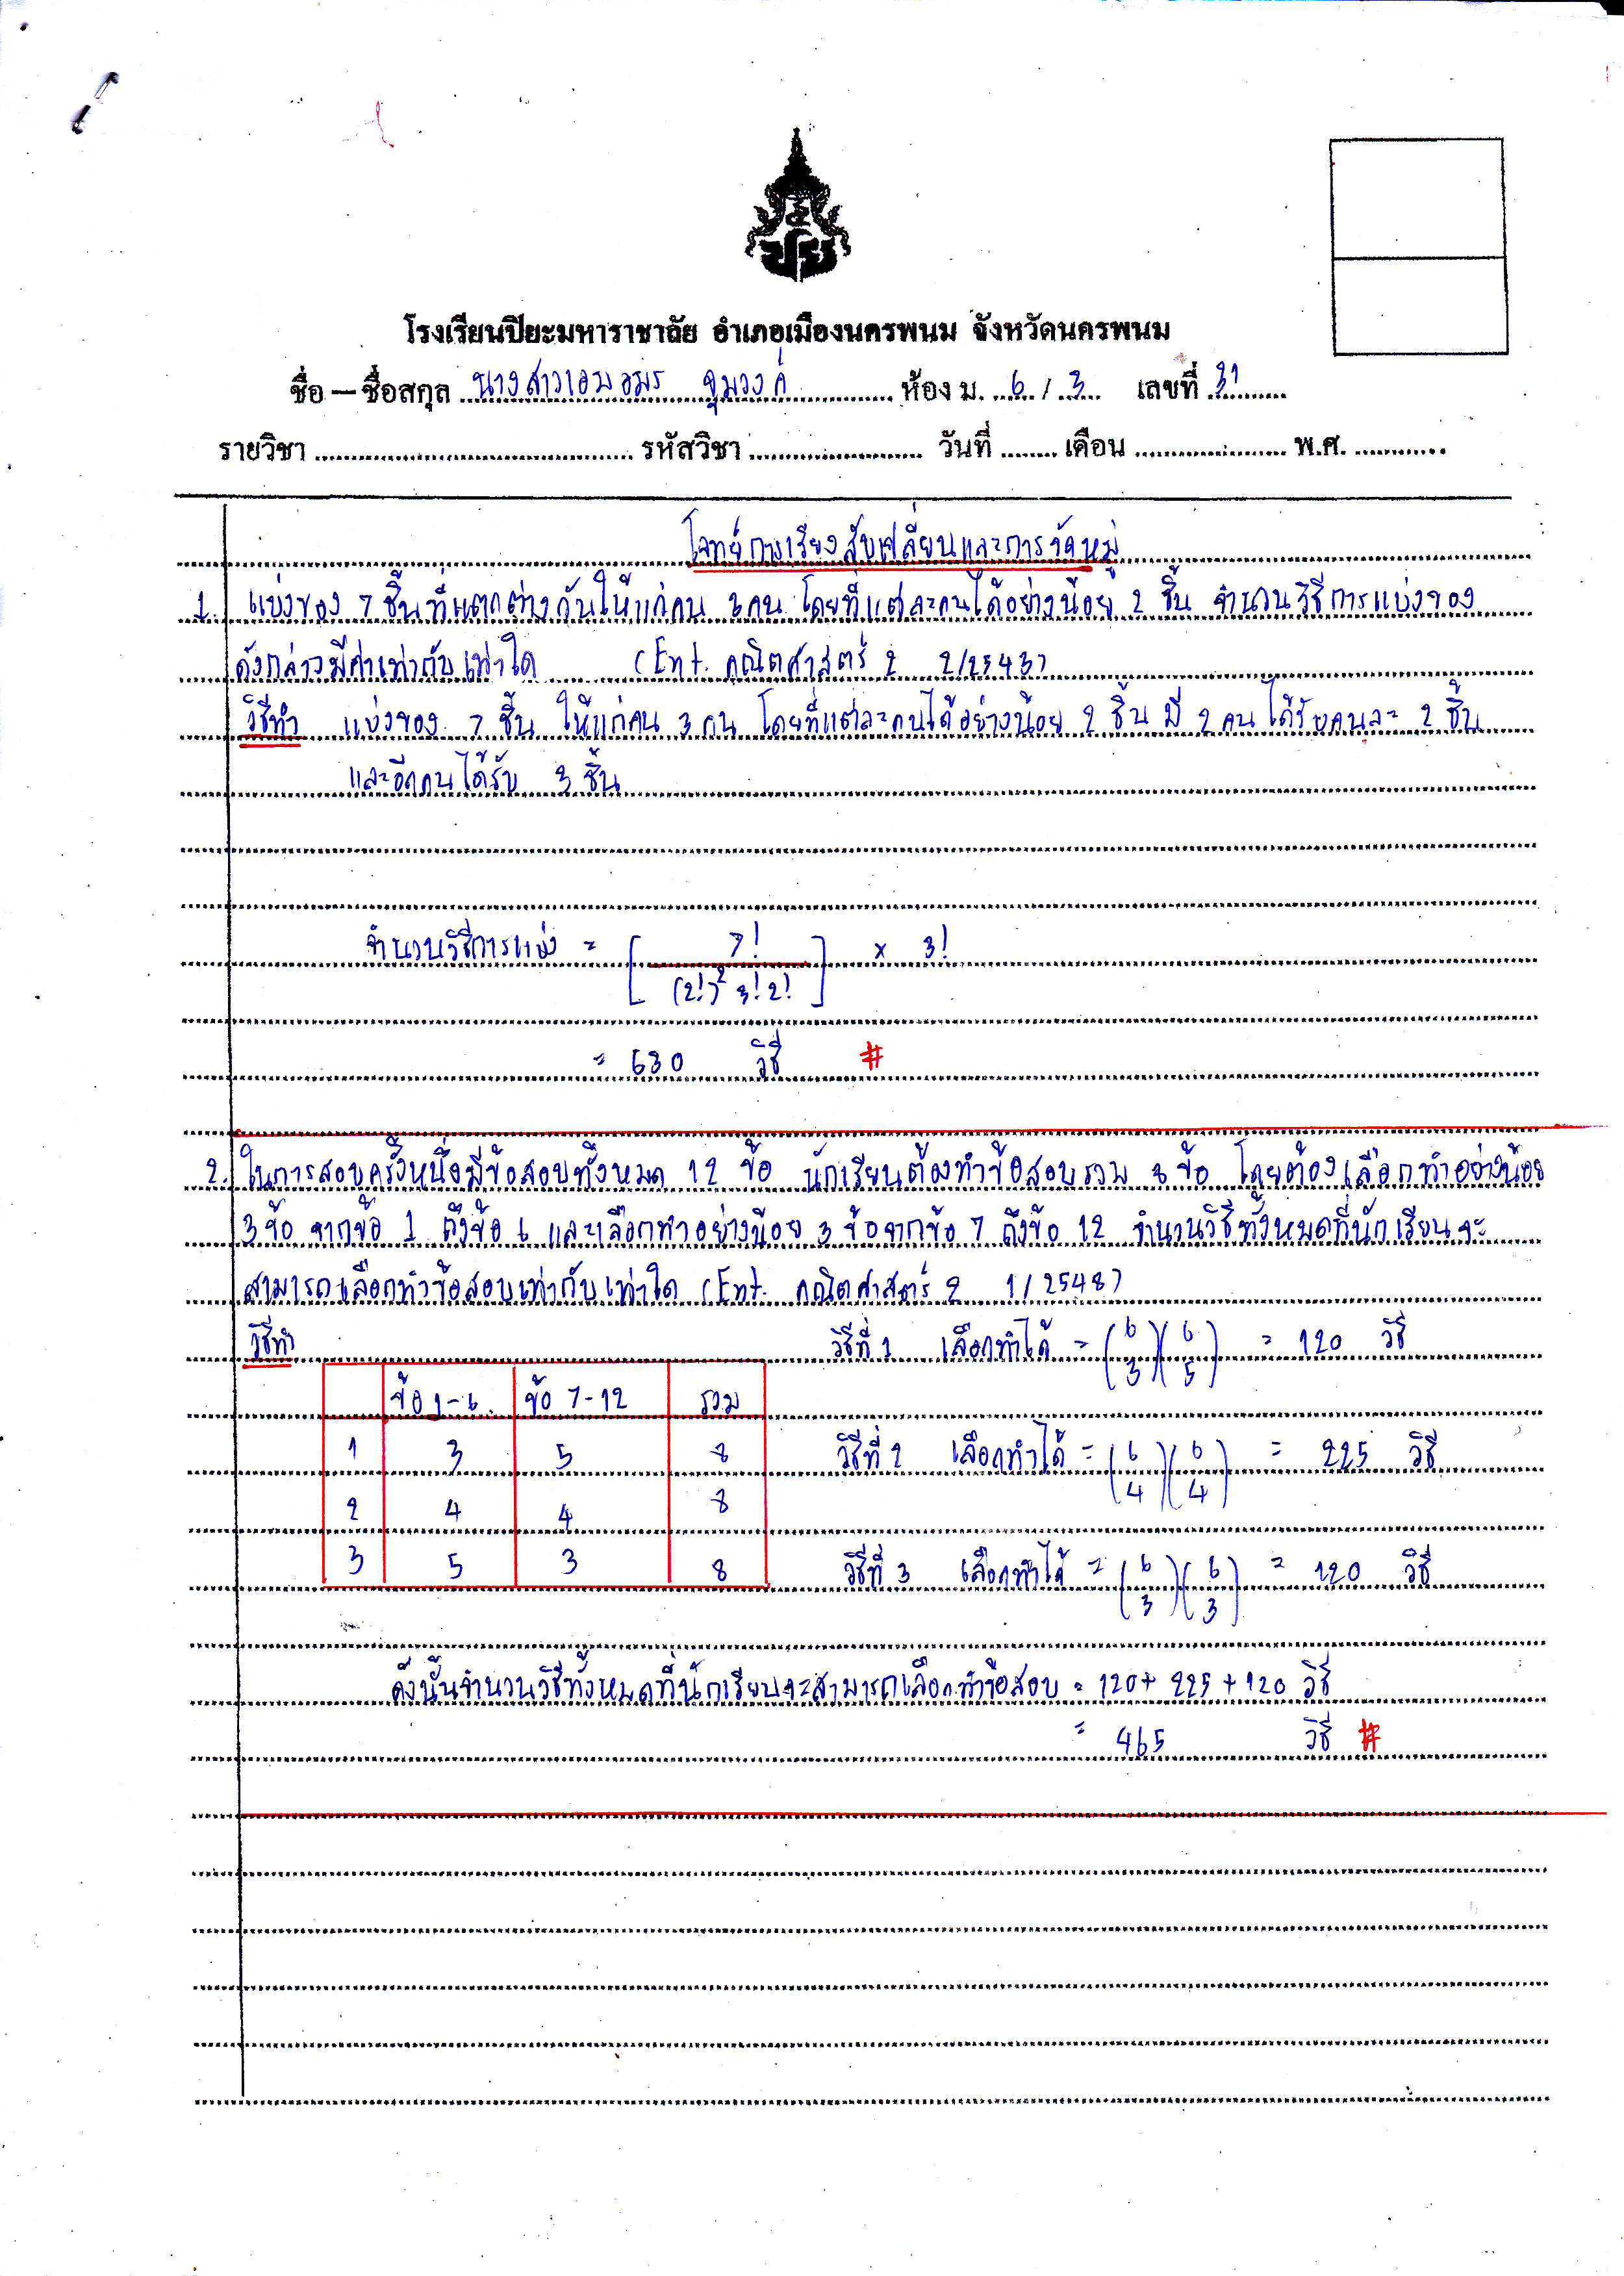 โรงเรียนปิยะมหาราชาลัย อำเภอเมืองนครพนม จังหวัดนครพนม
ชื่อ – ชื่อสกุล นางสาวเอมอมร จุมวงค์ ห้อง ม. 6 / 3 เลขที่ 31
รายวิชา รหัสวิชา วันที่ เดือน พ.ศ.
โจทย์การเรียงสับเปลี่ยนและการจัดหมู่
1. แบ่งของ 7 ชิ้นที่แตกต่างกันให้แก่คน 3 คน โดยที่แต่ละคนได้อย่างน้อย 2 ชิ้น จำนวนวิธีการแบ่งของ
ดังกล่าวมีค่าเท่ากับเท่าใด (Ent. คณิตศาสตร์ 2 2/2543)
วิธีทำ แบ่งของ 7 ชิ้น ให้แก่คน 3 คน โดยที่แต่ละคนได้อย่างน้อย 2 ชิ้น มี 2 คนได้รับคนละ 2 ชิ้น
และอีกคนได้รับ 3 ชิ้น
จำนวนวิธีการแบ่ง = [ 7! / (2!)² 3! 2! ] x 3!
= 630 วิธี #
2. ในการสอบครั้งหนึ่งมีข้อสอบทั้งหมด 12 ข้อ นักเรียนต้องทำข้อสอบรวม 8 ข้อ โดยต้องเลือกทำอย่างน้อย
3 ข้อ จากข้อ 1 ถึงข้อ 6 และเลือกทำอย่างน้อย 3 ข้อจากข้อ 7 ถึงข้อ 12 จำนวนวิธีทั้งหมดที่นักเรียนจะ
สามารถเลือกทำข้อสอบเท่ากับเท่าใด (Ent. คณิตศาสตร์ 2 1/2548)
วิธีทำ
ข้อ 1-6 ข้อ 7-12 รวม
1 3 5 8
2 4 4 8
3 5 3 8
วิธีที่ 1 เลือกทำได้ = (6 3)(6 5) = 120 วิธี
วิธีที่ 2 เลือกทำได้ = (6 4)(6 4) = 225 วิธี
วิธีที่ 3 เลือกทำได้ = (6 3)(6 3) = 120 วิธี
ดังนั้นจำนวนวิธีทั้งหมดที่นักเรียนจะสามารถเลือกทำข้อสอบ = 120 + 225 + 120 วิธี
= 465 วิธี #